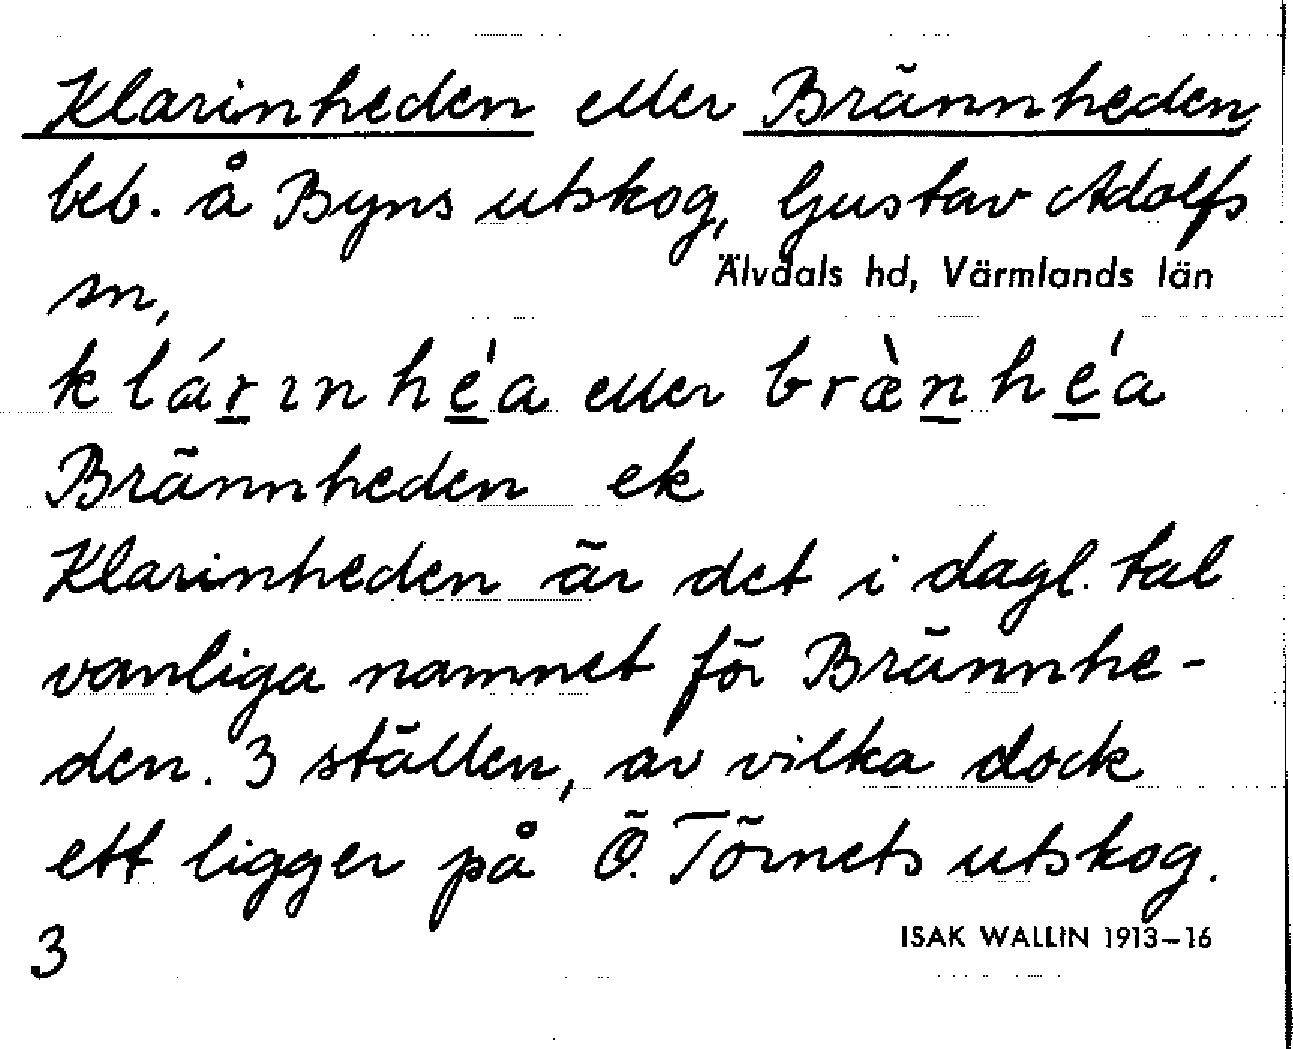 Klarinheden eller Brännheden
beb. å Byns utskog, Gustav Adolfs
sn,
Älvdals hd, Värmlands län
klárɪnhé̲a eller bræ̀n̲hé̲a
Brännheden ek
Klarinheden är det i dagl. tal
vanliga namnet för Brännhe-
den. 3 ställen, av vilka dock
ett ligger på Ö. Törnets utskog.
ISAK WALLIN 1913–16
3